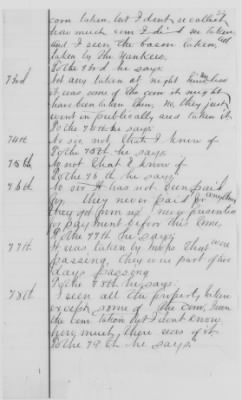 corn taken but I dont recollect
how much corn I did see taken
and I seen the bacon taken, all
taken by the Yankees.
To the 73rd he says
73rd Not any taken at night
it was some of the corn it might
have been taken then, No, they just
went in publically and taken it.
To the 74th he says
74th No sir not that I know of
To the 75th he says
75th Not that I know of
To the 76th he says
76th No sir it has not been paid
for, they never paid for anything
they got from me never presented
for payment before this time.
To the 77th he says
77th It was taken by troops that were
passing, they were part of two
days passing
To the 78th he says.
78th I seen all the property taken
except some of the corn, I seen
the corn taken but I dont know
how much there was of it
To the 79th he says